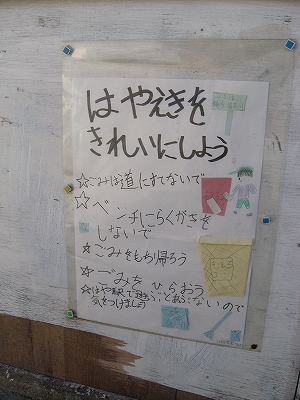 はやえきを
きれいにしよう
☆ごみは道にすてないで
☆ベンチにらくがきを
しないで
☆ごみをもち帰ろう
☆一ごみち ひらおう
☆はや駅で遊ぶとあぶないので
気をつけましょう